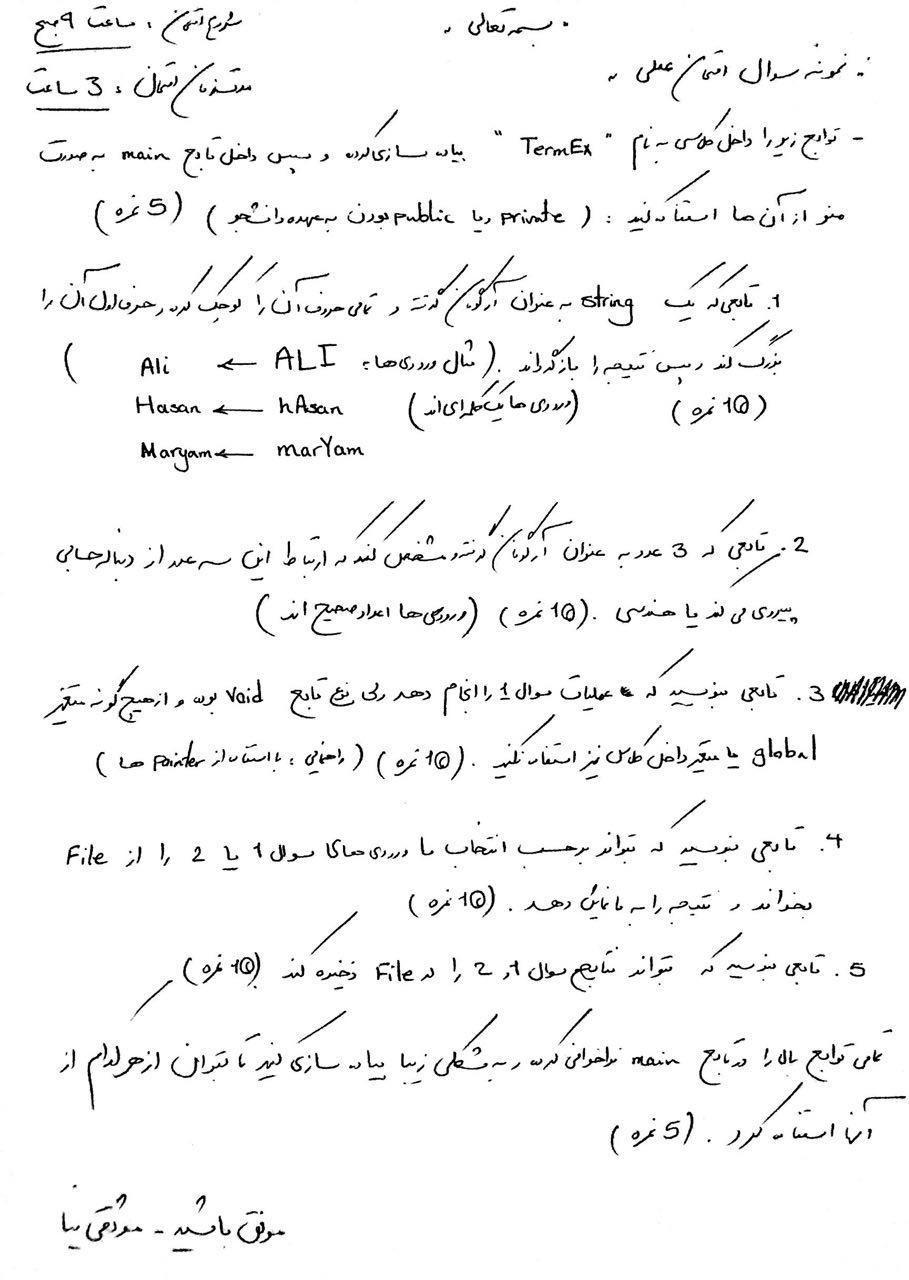 بسمه تعالی
شروع امتحان : ساعت 9 صبح
نمونه سوال امتحان عملی
مدت زمان امتحان : 3 ساعت
- توابع زیر را داخل کلاسی به نام "TermEx" پیاده سازی کرده و سپس داخل تابع main به صورت
منو از آن ها استفاده کنید : (private و یا public بودن به عهده دانشجو) (5 نمره)
1. تابعی که یک string به عنوان آرگومان گرفته و تمامی حروف آن را کوچک کرده و حرف اول آن را
بزرگ کند و سپس نتیجه را بازگرداند. (مثال ورودی ها : ALI → Ali)
(10 نمره) (ورودی ها یک کلمه ای اند) hAsan → Hasan
marYam → Maryam
2. تابعی که 3 عدد به عنوان آرگومان گرفته و مشخص کند که ارتباط این سه عدد از دنباله حسابی
پیروی می کند یا هندسی. (10 نمره) (ورودی ها اعداد صحیح اند)
3. تابعی بنویسید که عملیات سوال 1 را انجام دهد ولی نوع تابع void بوده و از هیچ گونه متغیر
global یا متغیر داخل کلاس نیز استفاده نکنید. (10 نمره) (راهنمایی : با استفاده از pointer ها)
4. تابعی بنویسید که بتواند برحسب انتخاب ما ورودی های سوال 1 یا 2 را از File
بخواند و نتیجه را به ما نمایش دهد. (10 نمره)
5. تابعی بنویسید که بتواند نتایج سوال 1 و 2 را در File ذخیره کند (10 نمره)
تمامی توابع بالا را در تابع main فراخوانی کرده و به شکلی زیبا پیاده سازی کنید تا بتوان از هر کدام از
آنها استفاده کرد. (5 نمره)
موفق باشید -